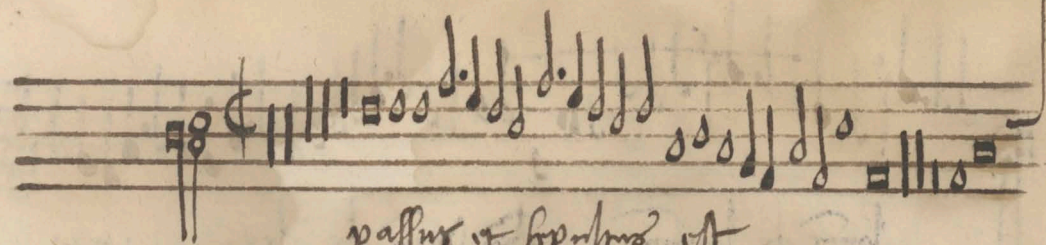 passus et sepultus est